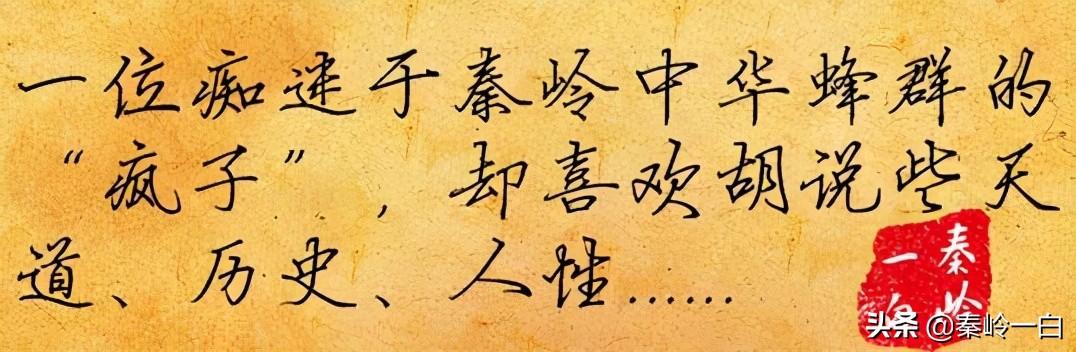 一位痴迷于秦岭中华蜂群的
“疯子”，却喜欢胡说些天
道、历史、人性……
秦岭
一白
头条 @秦岭一白